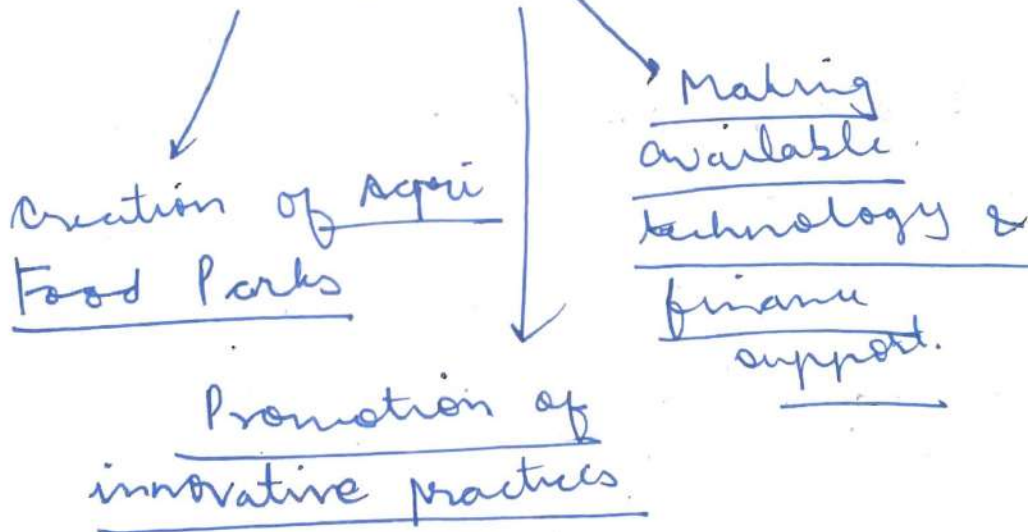 Creation of Agri
Food Parks
Promotion of
innovative practices
Making
available
technology &
finance
support.